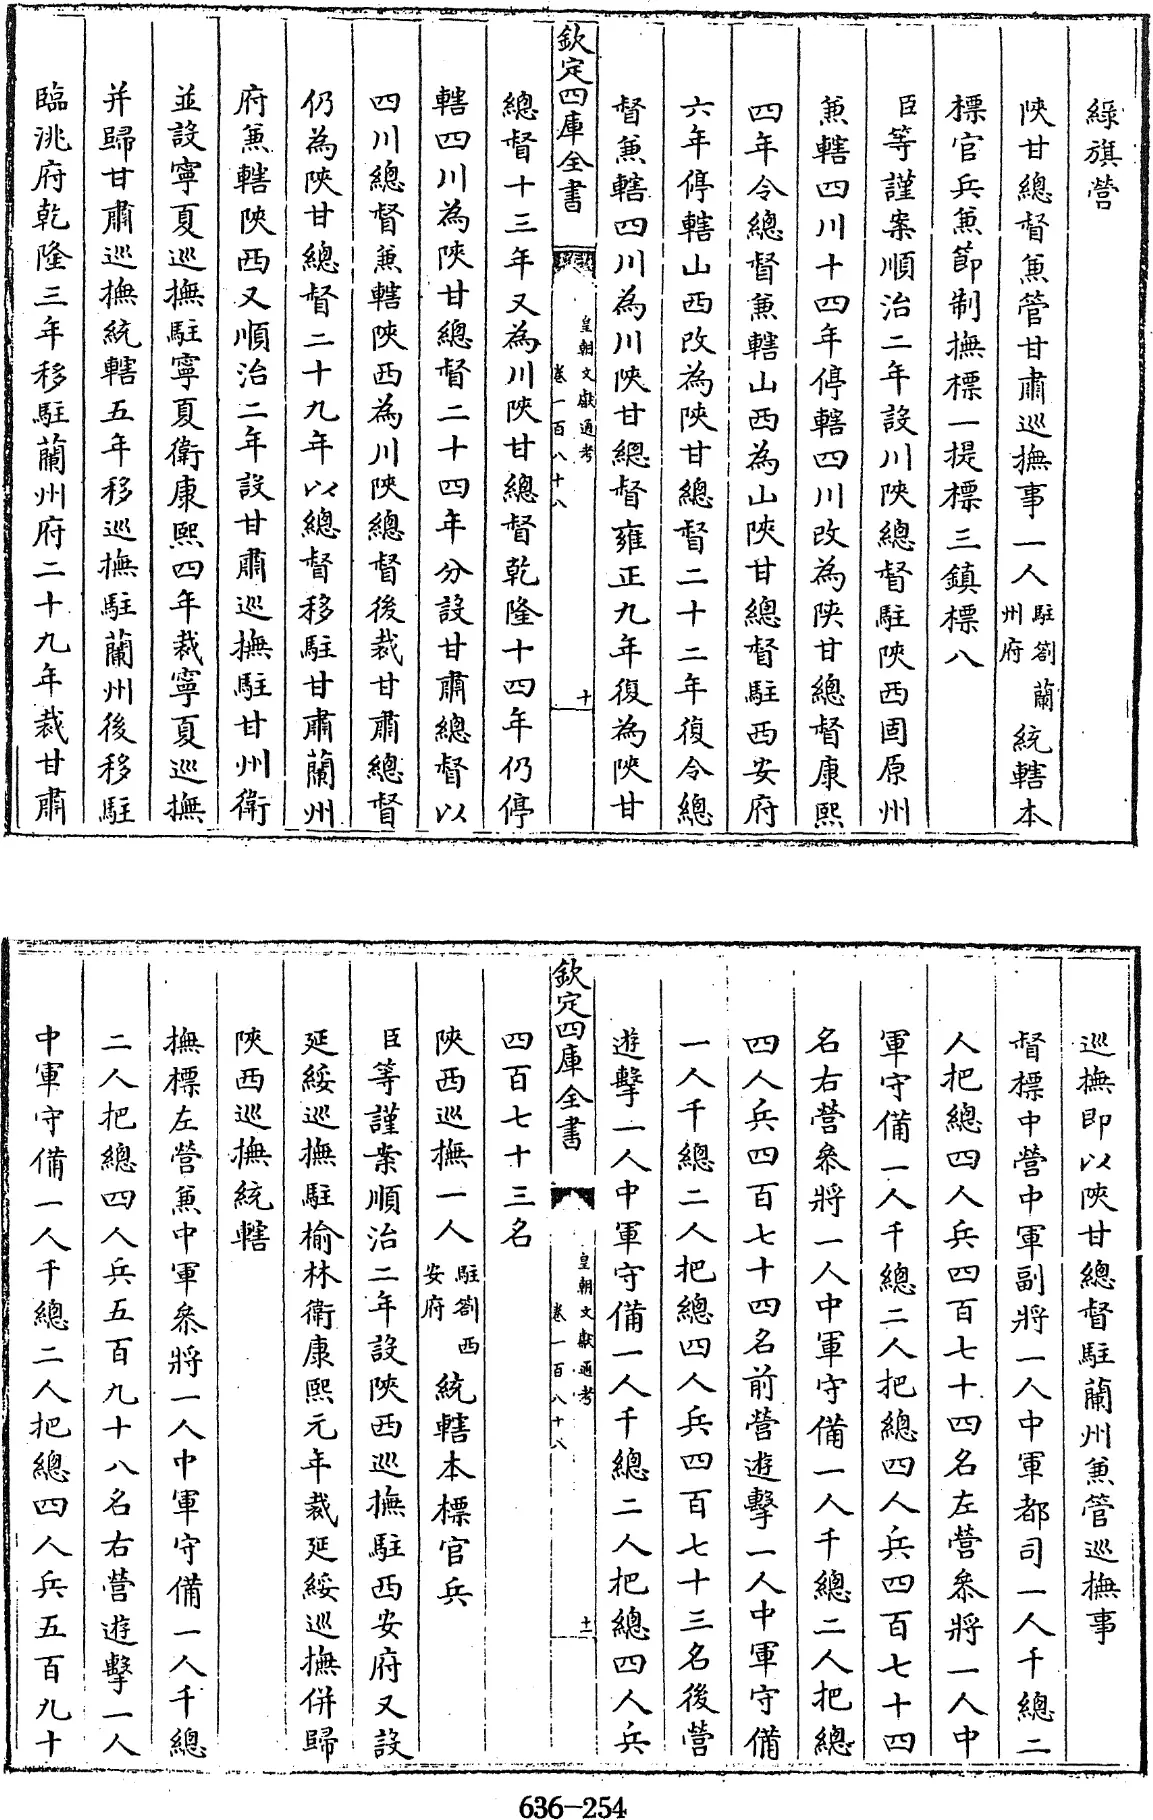 綠旗營
陜甘總督兼管甘肅巡撫事一人駐劄蘭州府統轄本
標官兵兼節制撫標一提標三鎮標八
臣等謹案順治二年設川陜總督駐陜西固原州
兼轄四川十四年停轄四川改為陜甘總督康熙
四年令總督兼轄山西為山陜甘總督駐西安府
六年停轄山西改為陜甘總督二十二年復令總
督兼轄四川為川陜甘總督雍正九年復為陜甘
欽定四庫全書
皇朝文獻通考
卷一百八十八
十
總督十三年又為川陜甘總督乾隆十四年仍停
轄四川為陜甘總督二十四年分設甘肅總督以
四川總督兼轄陜西為川陜總督後裁甘肅總督
仍為陜甘總督二十九年以總督移駐甘肅蘭州
府兼轄陜西又順治二年設甘肅巡撫駐甘州衛
並設寧夏巡撫駐寧夏衛康熙四年裁寧夏巡撫
并歸甘肅巡撫統轄五年移巡撫駐蘭州後移駐
臨洮府乾隆三年移駐蘭州府二十九年裁甘肅
巡撫即以陜甘總督駐蘭州兼管巡撫事
督標中營中軍副將一人中軍都司一人千總二
人把總四人兵四百七十四名左營叅將一人中
軍守備一人千總二人把總四人兵四百七十四
名右營叅將一人中軍守備一人千總二人把總
四人兵四百七十四名前營遊擊一人中軍守備
一人千總二人把總四人兵四百七十三名後營
遊擊一人中軍守備一人千總二人把總四人兵
欽定四庫全書
皇朝文獻通考
卷一百八十八
十一
四百七十三名
陜西巡撫一人駐劄西安府統轄本標官兵
臣等謹案順治二年設陜西巡撫駐西安府又設
延綏巡撫駐榆林衛康熙元年裁延綏巡撫併歸
陜西巡撫統轄
撫標左營兼中軍叅將一人中軍守備一人千總
二人把總四人兵五百九十八名右營遊擊一人
中軍守備一人千總二人把總四人兵五百九十
636-254